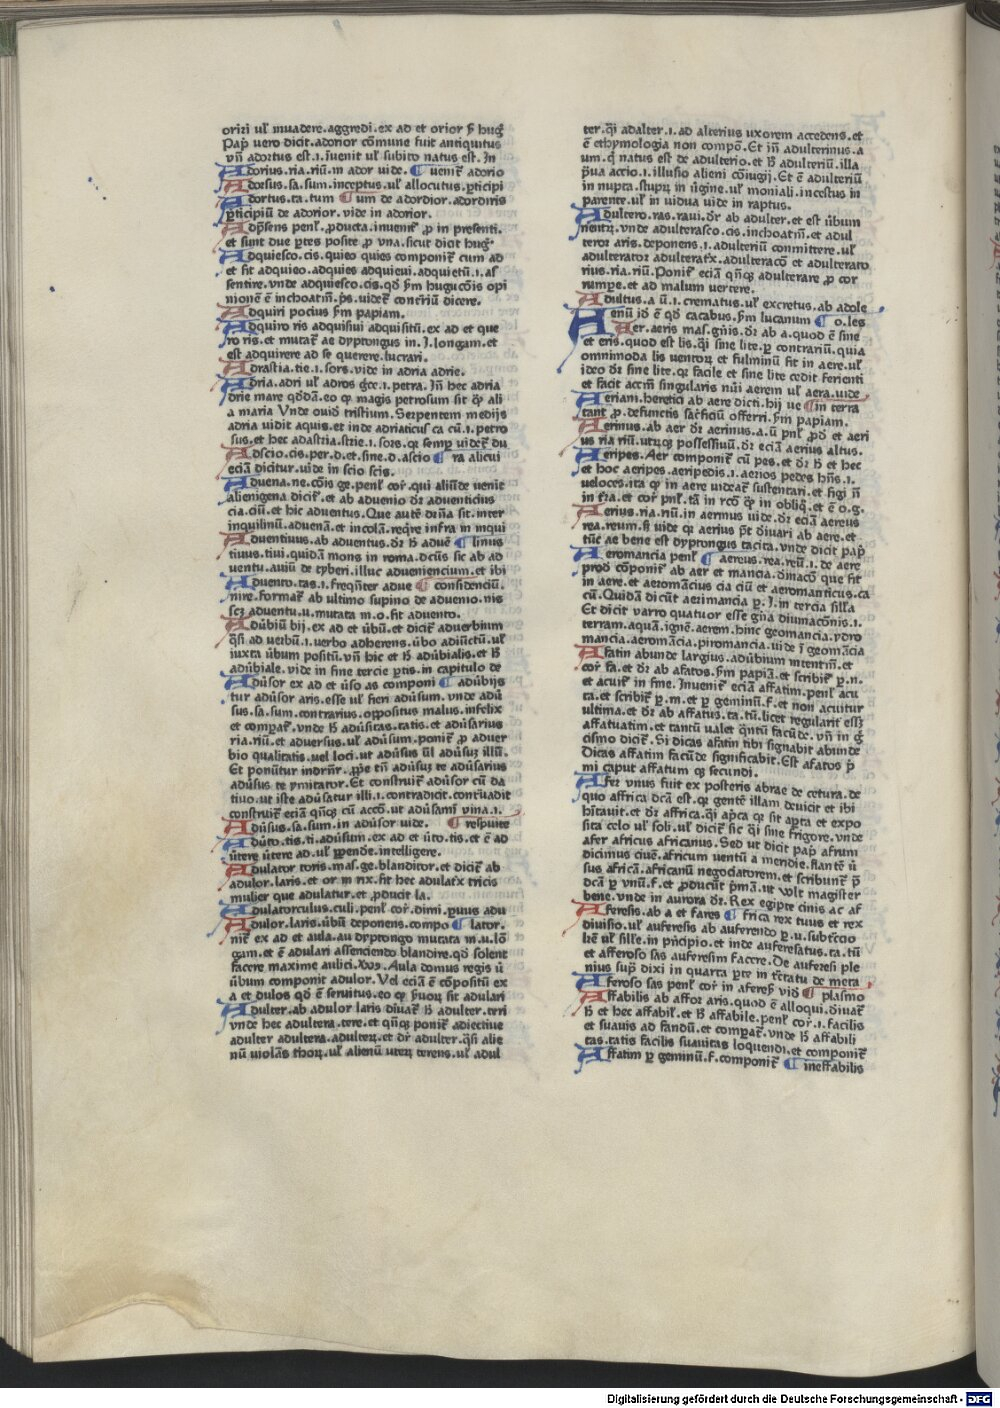 orizi ul᷑ inuadere.aggredi.ex ad et orior ẜm hug᷑
Pap᷑ uero dicit.adorior cōmune fuit antiquitus
vn̄ adortus est.i.iuenit ul᷑ subito natus est.In
Adorius.ria.riū.in ador uide. ¶ uenit᷑ adorio
Adorsus.sa.sum.inceptus.ul᷑ allocutus.ꝑticipi
Adortus.ta.tum ¶ um de adordior.adordiris
ꝑticipiū de adorior.vide in adorior.
Adp̄sens penl᷑.ꝓducta.inuenit᷑ ꝓ in presenti.
et sunt due ꝑtes posite ꝓ vna.sicut dicit hug᷑
Adquiesco.cis.quieo quies componit᷑ cum ad
et fit adquieo.adquies adquieui.adquietū.i.as᷑
sentire.vnde adquiesco.cis.qd̓ ẜm hugucōis opi
nionē ē inchoatm̄.p̄s.videt᷑ contr̄iū dicere.
Adquiri pocius ẜm papiam.
Adquiro ris adquisiui adquisitū.ex ad et que
ro ris.et mutat᷑ ae dyptongus in.J.longam.et
est adquirere ad se querere.lucrari.
Adrastia.tie.i.sors.vide in adria adrie.
Adria.adri ul᷑ adros gᷓce.i.petra.Jn̄ hec adria
drie mare qd̓dā.eo ꝙ magis petrosum sit ꝙ᷑ ali
a maria Vnde ouid᷑ tristium.Serpentem medijs
adria vidit aquis.et inde adriaticus ca cū.i.petro
sus.et hec adastria.strie.i.sors.qꝫ semꝑ videt᷑ du
Adscio.cis.per.d.et.sine.d.ascio ¶ ra alicui
eciā dicitur.vide in scio scis.
Aduena.ne.cōis ge.penl᷑ cor᷑.qui aliūde uenit
alienigena dicit᷑.et ab aduenio dr̄ aduenticius
cia.ciū.et hic aduentus.Que autē dr̄na sit.inter
inquilinū.aduenā.et incolā.reqͥre infra in inqui
Aduentiuus.ab aduentus.dr̄ ħ aduē ¶ linus
tiuus.tiui.quidā mons in roma.dcūs sic ab ad
uentu.auiū de tyberi.illuc adueniencium.et ibi
Aduento.tas.i.freqn̄ter adue ¶ confidenciū.
nire.format᷑ ab ultimo supino de aduenio.nis
scꝫ aduentu.u.mutata in.o.fit aduento.
Adūbiū bij.ex ad et ūbū.et dicit᷑ aduerbium
qͣsi ad uerbū.i.verbo adherens.ūbo adiūctū.ul᷑
iuxta ūbum positū.vn̄ hic et ħ adūbialis.et ħ
adūbiale.vide in fine tercie ꝑtis.in capitulo de
Adūsor ex ad et ūso as componi ¶ adūbijs
tur adūsor aris.esse ul᷑ fieri adūsum.vnde adū
sus.sa.sum.contrarius.oppositus malus.infelix
et compat᷑.vnde ħ adūsitas.tatis.et adūsarius
ria.riū.et aduersus.ul᷑ adūsum.ponit᷑ ꝓ aduer
bio qualitatis.uel loci.ut adūsus ūl adūsuꝫ illū.
Et ponūtur indrn̄r.ꝓpe tn̄ adūsuꝫ te adūsarius
adūsus te ymitator.Et construit᷑ adūsor cū da
tiuo.ut iste adūsatur illi.i.contradicit.contͣuadit
construit᷑ eciā qn̄qꝫ cū accō.ut adūsami vina.i.
Adūsus.sa.sum.in adūsor uide. ¶ respuite
Adūto.tis.ti.adūsum.ex ad et ūto.tis.et ē ad
ūtere ūtere ad.ul᷑ ꝑpende.intelligere.
Adulator toris.mas.ge.blanditor.et dicit᷑ ab
adulor.laris.et or in rix.fit hec adulat᷑x tricis
mulier que adulatur.et ꝓducit la.
Adulatorculus.culi.penl᷑ cor᷑.dimi.ꝑuus adu
Adulor.laris.ūbū deponens.compo ¶ lator.
nit᷑ ex ad et aula.au dyptongo mutata in.u.lō
gam.et ē adulari assenciendo blandire.qd̓ solent
facere maxime aulici.Aula domus regis ū
ūbum componit adulor.Vel eciā ē cōpositū ex
a et dulos qd̓ ē seruitus.eo ꝙ ꝑuoꝝ sit adulari
Adulter.ab adulor laris diuat᷑ ħ adulter.teri
vnde hec adultera.tere.et qn̄qꝫ ponit᷑ adiectiue
adulter adultera.adulteꝝ.et dr̄ adulter.qͣsi alie
nū violās thoꝝ.ul᷑ alienū uteꝝ terens.ul᷑ adul
ter.qͣi adalter.i.ad alterius uxorem accedens.et
ē ethymologia non compō.Et in̄ adulterinus.a
um.qͥ natus est de adulterio.et ħ adulteriū.illa
ꝑua accio.i.illusio alieni cōiugij.Et ē adulteriū
in nupta.stupꝝ in ūgine.ul᷑ moniali.incestus in
parente.ul᷑ in vidua vide in raptus.
Adultero.ras.raui.dr̄ ab adulter.et est ūbum
neutꝝ.vnde adulterasco.cis.inchoatm̄.et adul
teror aris.deponens.i.adulteriū committere.ul᷑
adulterator adulterat᷑x.adulteracō et adulterato
rius.ria.riū.Ponit᷑ eciā qn̄qꝫ adulterare ꝓ cor
rumpe.et ad malum vertere.
Adultus.a ū.i.crematus.ul᷑ excretus.ab adole
Aenū id̓ ē qd̓ cacabus.ẜm lucanum ¶ o.les
Aer.aeris mas.gn̄is.dr̄ ab a.quod ē sine
et eris.quod est lis.qͣi sine lite.ꝑ contrariū.quia
omnimoda lis uentoꝝ et fulminū fit in aere.ul᷑
ideo dr̄ sine lite.qꝫ facile et sine lite cedit ferienti
et facit accm̄ singularis nūi aerem ul᷑ aera.uide
Aeriani.heretici ab aere dicti.hij ue ¶ in terra
tant᷑ ꝓ.defunctis sacͥficiū offerri.ẜm papiam.
Aerinus.ab aer dr̄ aerinus.a.ū pnl᷑ ꝓd̓ et aeri
us ria riū.utꝝqꝫ possessiuū.dr̄ eciā aerius altus.
Aeripes.Aer componit᷑ cū pes.et dr̄ ħ et hec
et hoc aeripes.aeripedis.i.aerios pedes hn̄s.i.
veloces.ita ꝙ in aere videat᷑ sustentari.et figi n̄
in t᷑ra.et cor᷑ pnl᷑.tā in rcō ꝙ᷑ in obliqͥ.et ē o.g.
Aerius.ria.riū.in aerinus uide.dr̄ eciā aereus
rea.reum.sꝫ uide qꝫ aerius p̄t diuari ab aere.et
tūc ae bene est dyptongus tacita.vnde dicit pap᷑
Aeromancia penl᷑ ¶ aereus.rea.reū.i.de aere
prod̓ cōponit᷑ ab aer et mancia.diuacō que fit
in aere.et aeromācius cia ciū et aeromanticus.ca
cū.Quidā dicūt aerimancia ꝑ.J.in tercia sill᷑a
Et dicit varro quatuor esse gn̄a diuinacōnis.i.
terram.aquā.ignē.aerem.hinc geomancia.ydro
mancia.aeromācia.piromancia.uide ī geomācia
Afatin abunde largius.adūbium intentm̄.et
cor᷑ fa.et dr̄ ab afatos.ẜm papiā.et scribit᷑ ꝑ.n.
et acuit᷑ in fine.Inuenit᷑ eciā affatim.penl᷑ acu
ta.et scribit᷑ ꝑ.m.et ꝑ geminū.f.et non acuitur
ultima.et dr̄ ab affatus.ta.tū.licet regularit᷑ essꝫ
affatuatim.et tantū valet qn̄tū facūde.vn̄ in g᷑
cismo dicit᷑.Vbi dicas afatin tibi signabit abunde
Dicas affatim facūde significabit.Est afatos p᷑
mi caput affatum qꝫ secundi.
Afer vnus fuit ex posteris abrae de cetura.de
quo affrica dcā est.qꝫ gentē illam deuicit et ibi
hītauit.et dr̄ affrica.qͣi apͥca qꝫ sit apta et expo
sita celo ul᷑ soli.ul᷑ dicit᷑ sic qͣi sine frigore.vnde
afer africus africanus.Sed ut dicit pap᷑ afrum
dicimus ciuē.africum uentū a meridie.flantē ū
sus africā.africanū negociatorem.et scribunt᷑ p᷑
dcā ꝑ vnū.f.et ꝓducūt p᷑mā.ut volt magister
bene.vnde in aurora dr̄.Rex egipte cinis ac af
Aferesis.ab a et fares ¶ frica rex tuus et rex
diuisio.ul᷑ auferesis ab auferendo ꝑ.u.subtͣccio
lr̄e ul᷑ sill᷑e.in pͥncipio.et inde auferesatus.ta.tū
et afferoso sas auferesim facere.De auferesi ple
nius sup᷑ dixi in quarta ꝑte in tͬctatu de meta
Aferoso sas penl᷑ cor᷑ in aferes᷑ vid̓ ¶ plasmo
Affabilis ab affor aris.quod ē alloqui.diuat᷑
ħ et hec affabil᷑.et ħ affabile.penl᷑ cor᷑.i.facilis
et suauis ad fandū.et compat᷑.vnde ħ affabili
tas.tatis facilis suauitas loquendi.et componit᷑
Affatim ꝑ geminū.f.componit᷑ ¶ ineffabilis
Digitalisierung gefördert durch die Deutsche Forschungsgemeinschaft - DFG